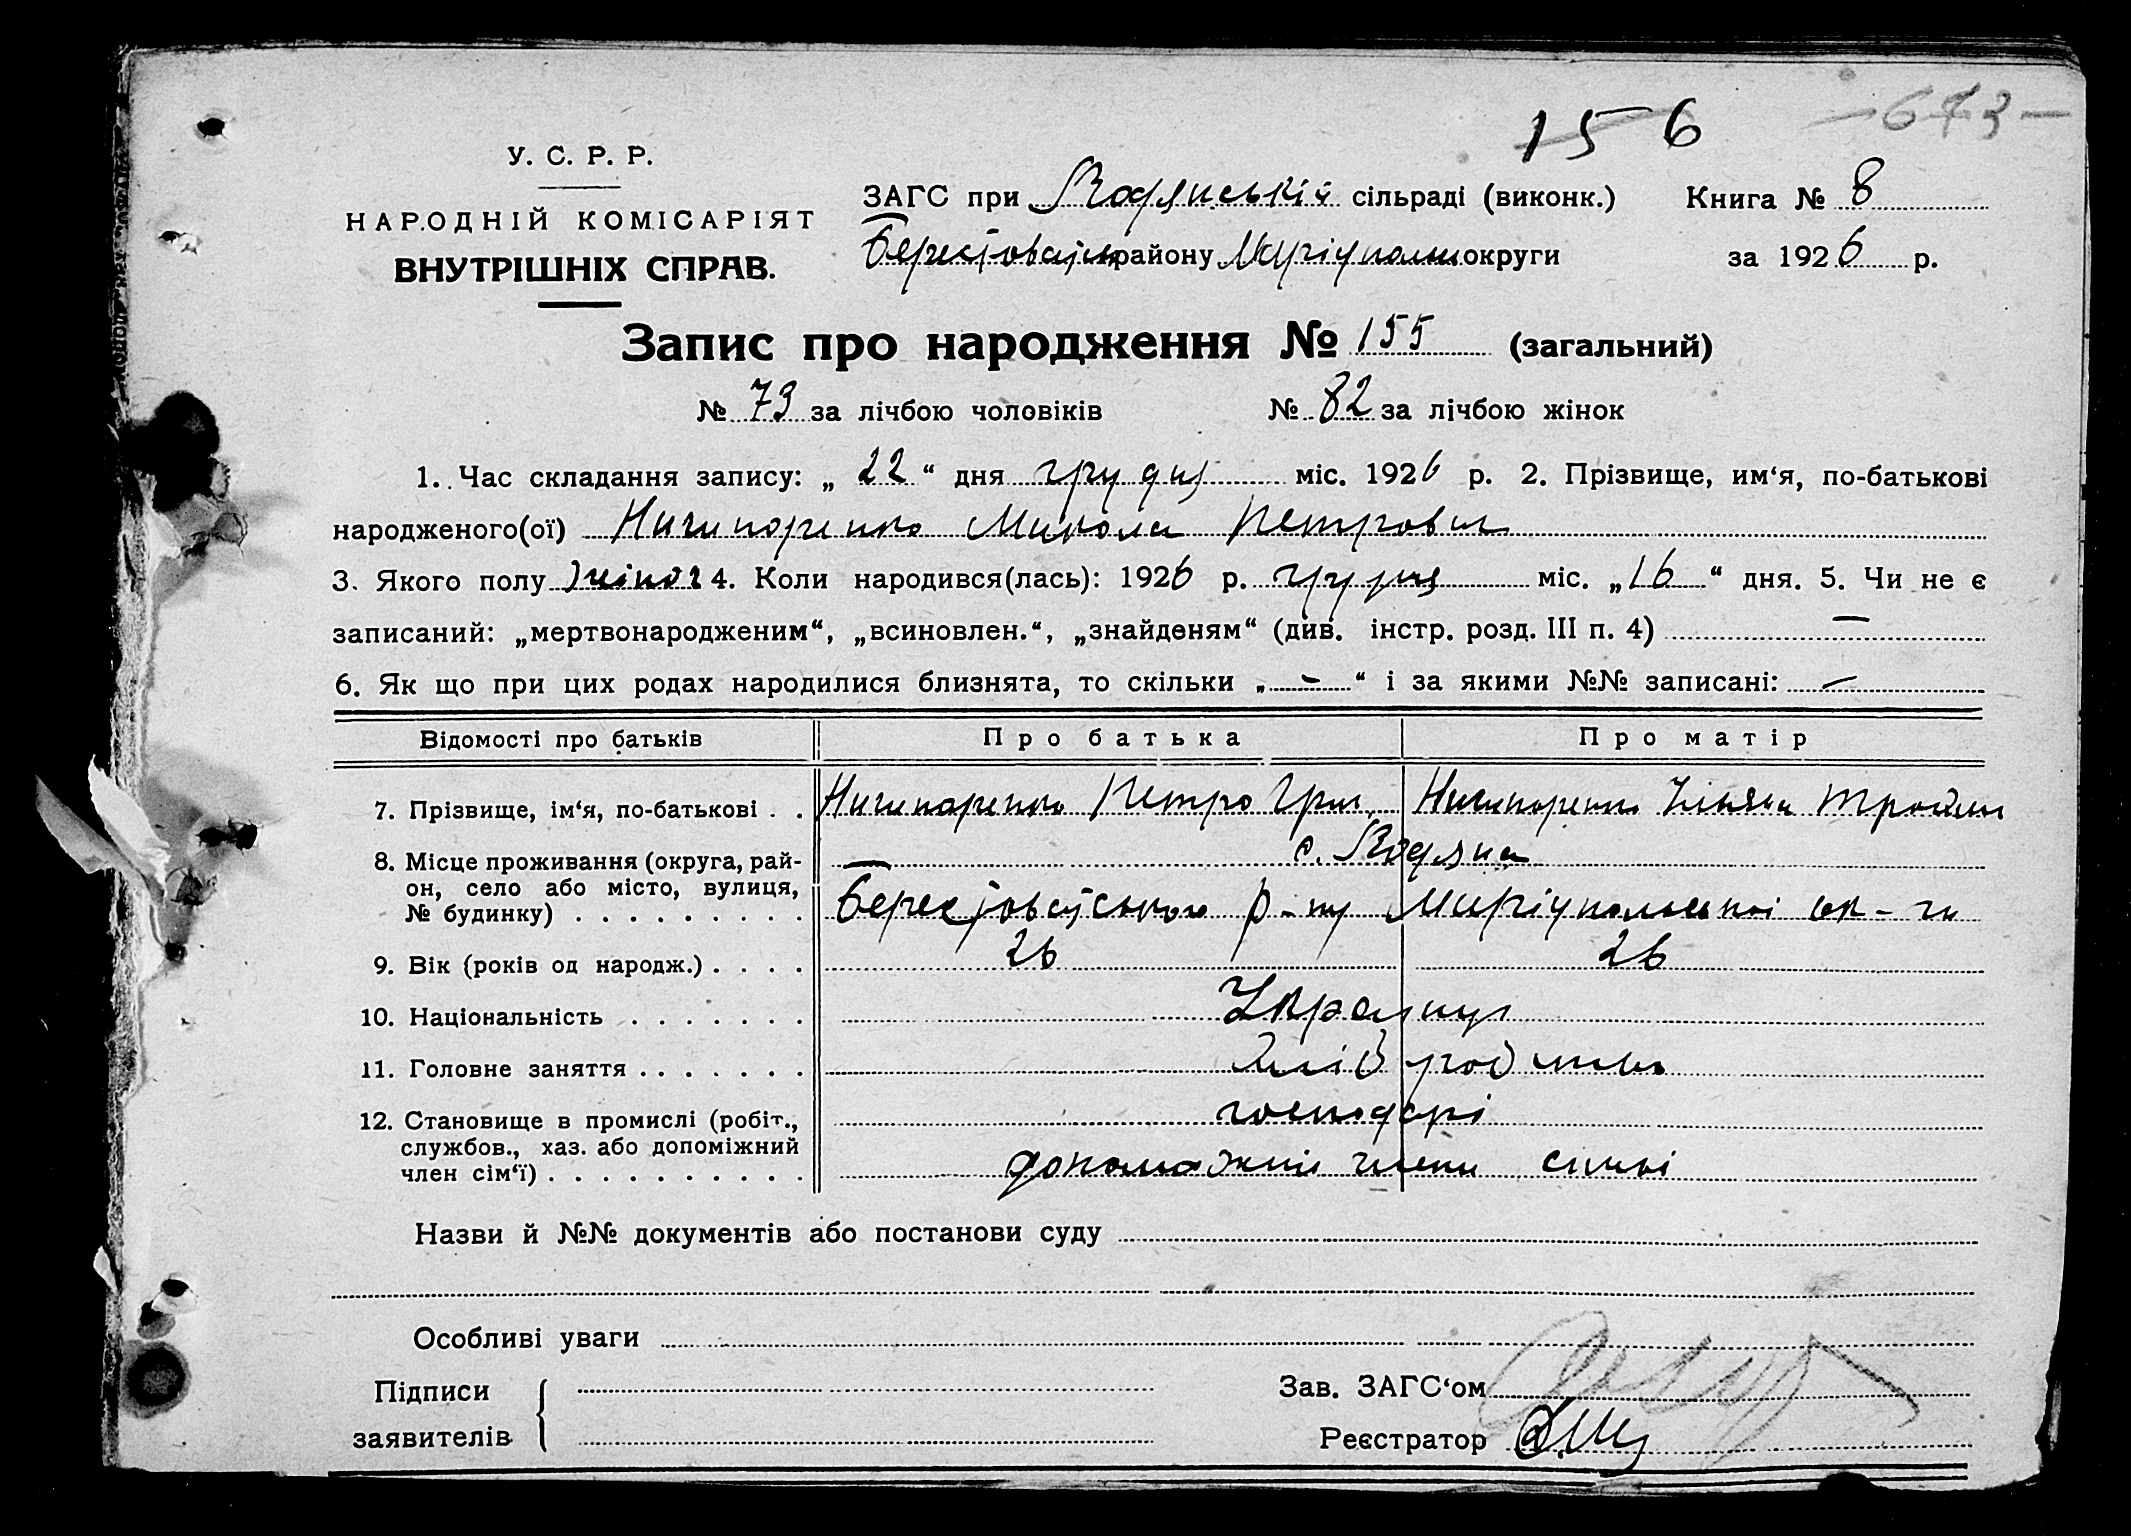 15 6 — 673 —
У. С. Р. Р.
НАРОДНІЙ КОМІСАРІЯТ
ВНУТРІШНІХ СПРАВ.
ЗАГС при Водянській сільраді (виконк.) Книга № 8
району округи за 1926 р.
Запис про народження № 155 (загальний)
№ 73 за лічбою чоловіків № 82 за лічбою жінок
1. Час складання запису: „ 22 “ дня грудня міс. 1926 р. 2. Прізвище, им‘я, по-батькові
народженого(ої) Ничипоренко Микола Петрович
3. Якого полу 4. Коли народився(лась): 1926 р. грудня міс. „16“ дня. 5. Чи не є
записаний: „мертвонародженим“, „всиновлен.“, „знайденям“ (див. інстр. розд. III п. 4) —
6. Як що при цих родах народилися близнята, то скільки „ - “ і за якими №№ записані: —
Відомості про батьків Про батька Про матір
7. Прізвище, ім‘я, по-батькові . . Ничипоренко Петро Григ. Ничипоренко
8. Місце проживання (округа, рай-
он, село або місто, вулиця,
№ будинку) . . . . . . . . .
с. Водяна
р-ну Маріупольської ок-ги
9. Вік (років од народж.) . . . . 26 26
10. Національність . . . . . . .
11. Головне заняття . . . . . . . хліборобство
12. Становище в промислі (робіт.,
службов., хаз. або допоміжний
член сім‘ї) . . . . . . . . . .
господарі
члени
Назви й №№ документів або постанови суду
Особливі уваги
Підписи
заявителів
Зав. ЗАГС‘ом
Реєстратор